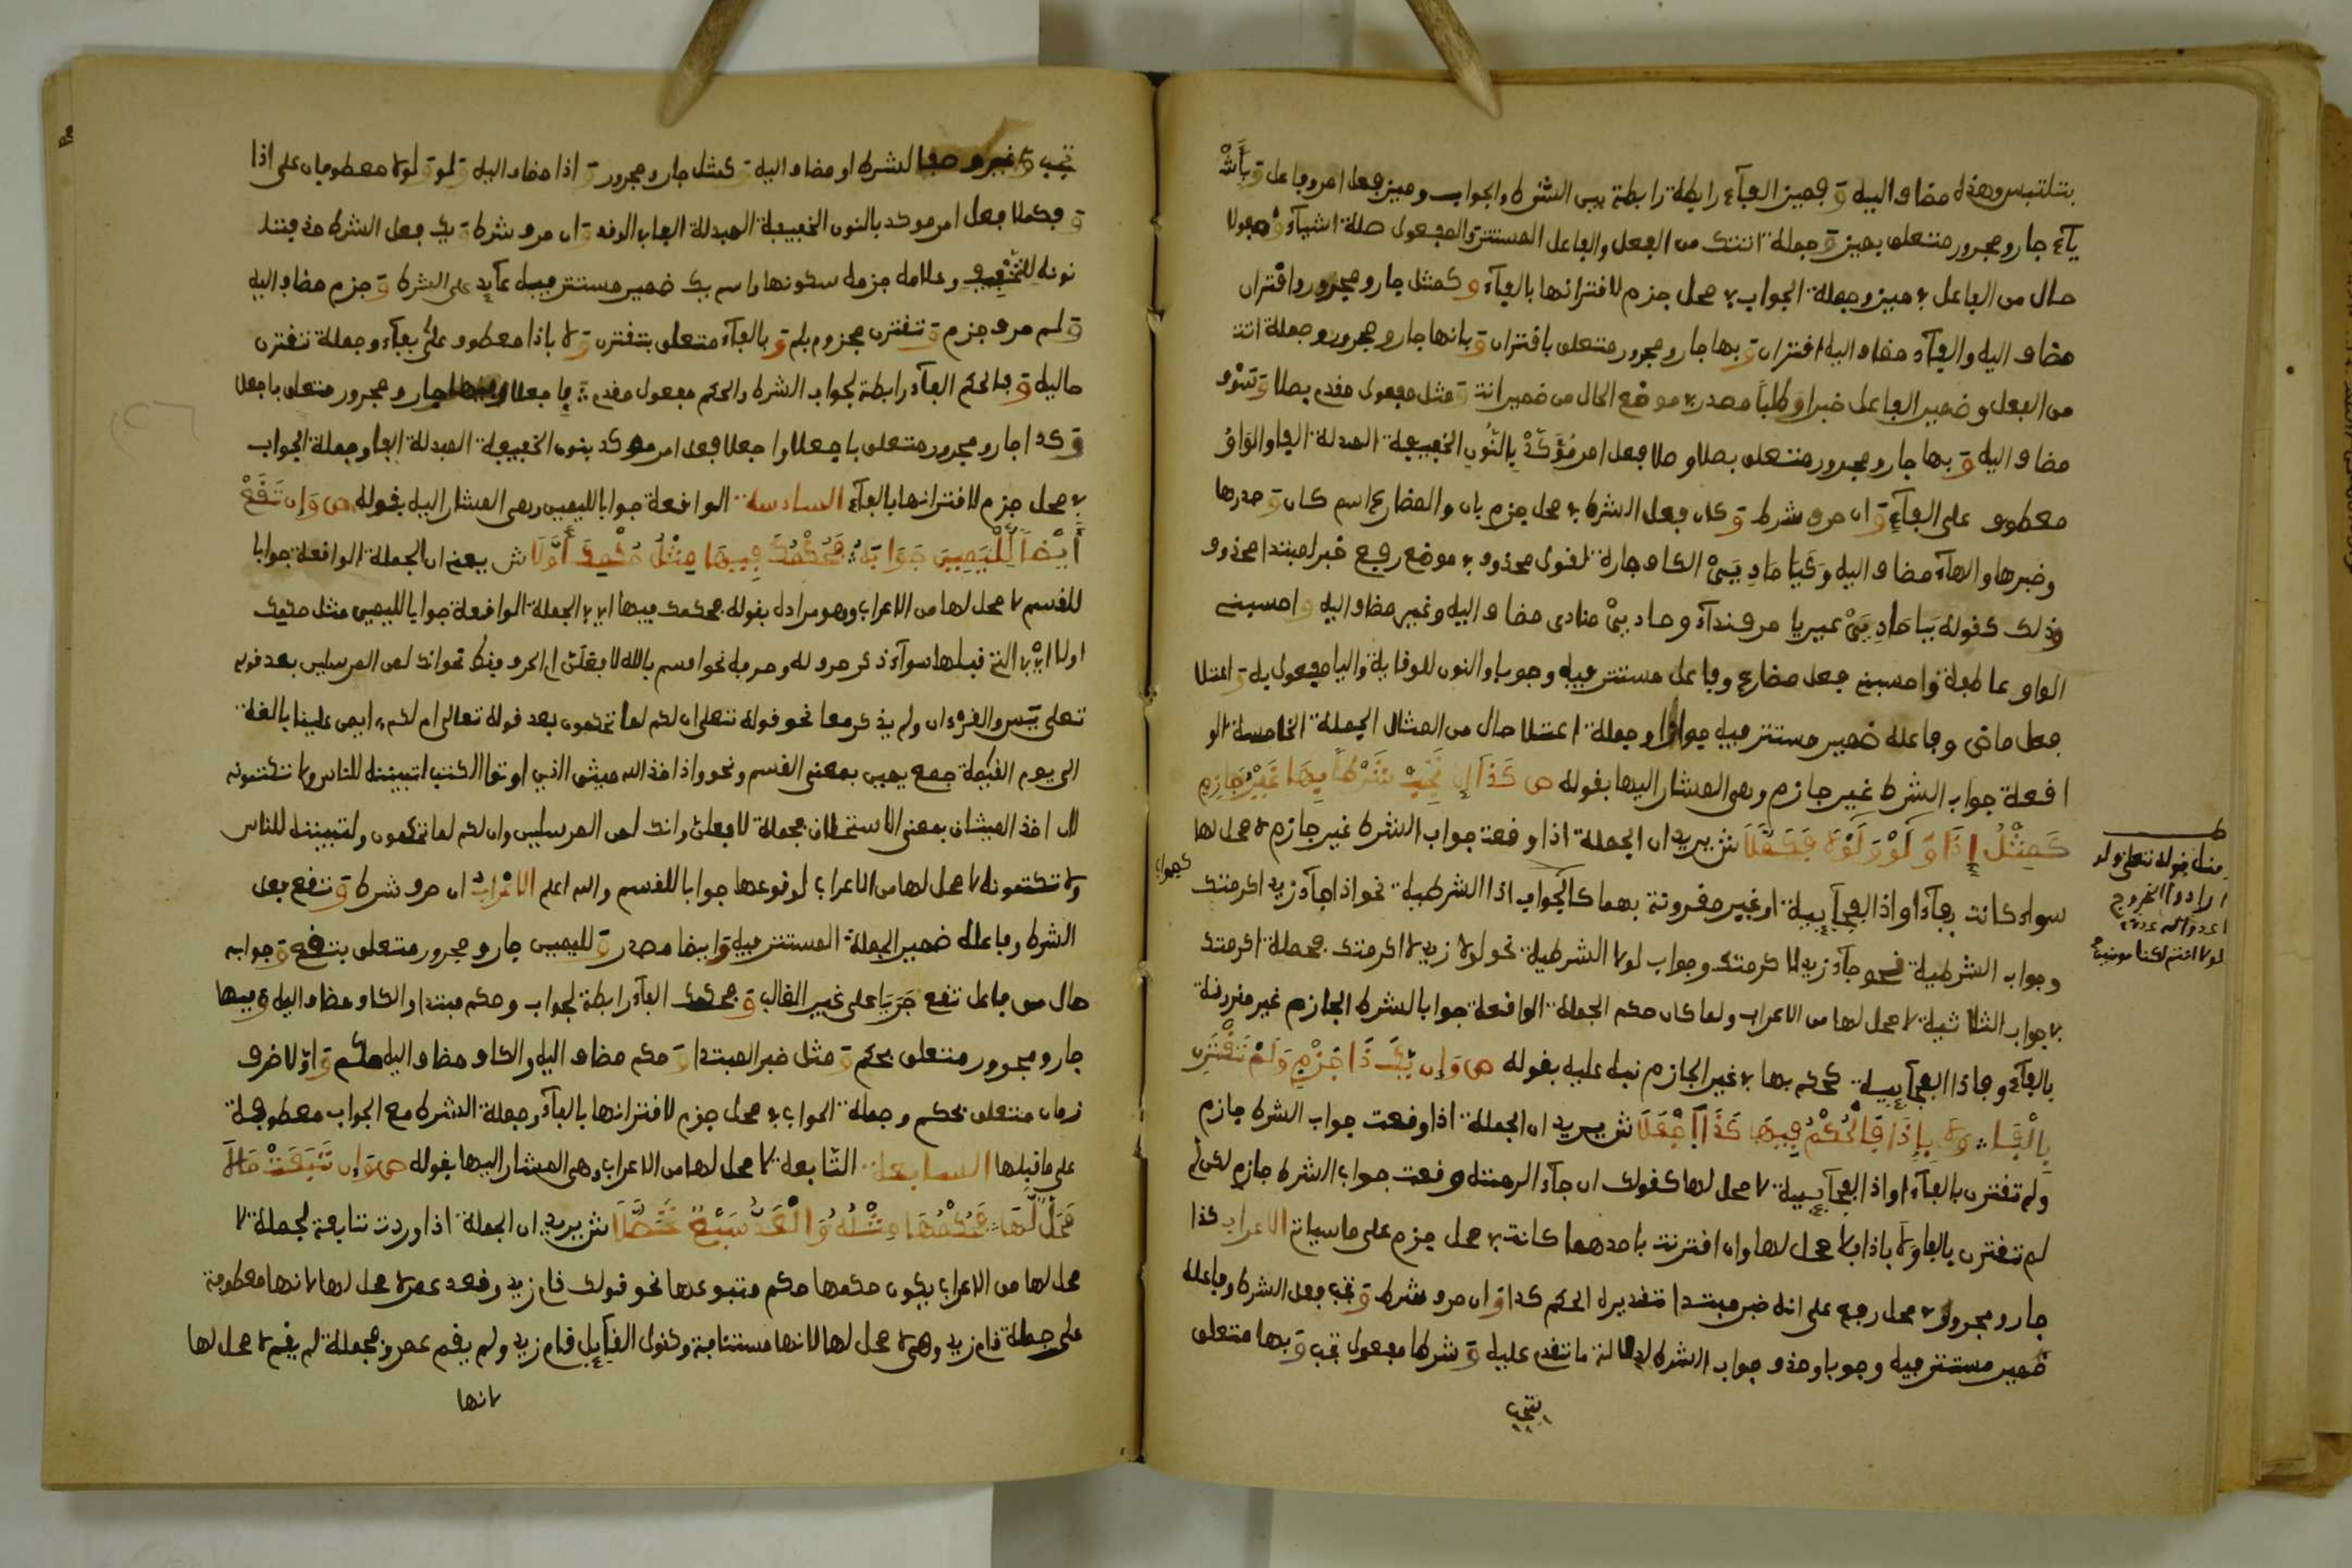 بتلتبس وهذه مضاف اليه وَ فميز الفآء رابطة رابطة بين الشرط والجواب وميز فعل امر وفاعل وَ بأشْ
يآء جار ومجرور متعلق بميز وَ جملة اتتك من الفعل والفاعل المستتر والمفعول صلة اشيآء وَ مجملا
حال من الفاعل في ميز وجملة الجواب في محل جزم لاقترانها بالفآء وَ كمثل جار ومجرور واقتران
مضاف اليه والفآء مضاف اليه اقتران وَ بها جار ومجرور متعلق باقتران وَ بانها جار ومجرور وجملة اتت
من الفعل وضمير الفاعل خبر ان وَ طلبا مصدر في موضع الحال من ضمير اتت وَ مثل مفعول مقدم بصلا وَ
مضاف اليه وَ بها جار ومجرور متعلق بصلا وصلا فعل امر مُؤَكَّدْ بِالنُّونِ الخفيفة المبدلة الفا والوَاوُ
معطوف على الفآءِ وَ ان حرف شرط وَ كان فعل الشرط في محل جزم بان والمضارع اسم كان وَ صدرها
وخبرها والهآء مضاف اليه وَ كَيَا مَادِ يَنْ الكاف جارة لقول محذوف في موضع رفع خبر لمبتدا محذوف
وذلك كقوله يَا مَادِ يَنْ غير يا حرف ندآء ومادين منادى مضاف اليه وغير مضاف اليه وَ احسبني
الواو عاطفة واحسبني فعل مضارع وفاعل مستتر فيه وجوبا والنون للوقاية واليا مفعول به وَ اعتلا
فعل ماض وفاعله ضمير مستتر فيه جوازا وجملة اعتلا حال من المثال الجملة الخامسة الو
اقعة جواب الشرط غير جازم وهي المشار اليها بقوله ص كَذَا إِ تُجِبْ شَرْطاً بِهَا غَيْرَ جَازِمِ
كَمِثْلُ إِذَا وَ لَوْ وَلَوْلاَ فَكَمِّلاَ ش يريد ان الجملة اذا وقعت جواب الشرط غير جازم لا محل لها
سواء كانت بفآء او اذا الفجآئية او غير مقرونة بهما كالجواب اذا الشرطية نحو اذا جآء زيد اكرمتك
وجواب الشرطية نحو جآء زيد لاكرمتك وجواب لولا الشرطية نحو لولا زيد لاكرمتك فجملة اكرمتك
في جواب الثلاثية لا محل لها من الاعراب ولما كان حكم الجملة الواقعة جوابا لشرط الجازم غير مقرونة
بالفآء وباذا الفجآئية كحكمها في غير الجازم نبه عليه بقوله ص وَ إِن يَكُ ذَا جَزْمٍ وَلَمْ تَقْتَرِن
بِالْفَا وَلاَ بِإِذَا فَالْحُكْمُ فِيهَا كَذَا اجْعَلاَ ش يريد ان الجملة اذا وقعت جواب الشرط جازم
ولم تقترن بالفآء او اذا الفجآئية لا محل لها كقولك ان جآء اكرمته وقعت جواب الشرط جازم لكن لم
لم تقترن بالفا ولا باذا فلا محل لها وان اقترنت باحدهما كانت في محل جزم على ما سياتي الاعراب كذا
جار ومجرور في محل رفع على انه خبر مبتدا تقديره الحكم كذا وَ ان حرف شرط وَ تجب فعل الشرط وفاعله
ضمير مستتر فيه وجوبا وحذف جواب الشرط لدلالة ما تقدم عليه وَ شرطا مفعول تجب وَ بها متعلق
بتجب
منه قوله تعالى ولو
ارادوا الخروج
لاعدوا له عدة
لولا انتم لكنا مومنين
كجواب
تجب وَ غير وصف الشرط او مضاف اليه وَ كمثل جار ومجرور وَ اذا مضاف اليه وَ لو وَ لولا معطوفان على اذا
وَ فكملا فعل امر موكد بالنون الخفيفة المبدلة الفا في الوقف وَ ان حرف شرط وَ يك فعل الشرط حذفت
نونه للتخفيف وعلامة جزمه سكونها واسم يك ضمير مستتر فيه عآيد على الشرط وَ جزم مضاف اليه
وَ لم حرف جزم وَ تقترن مجزوم بلم وَ بالفآء متعلق بتقترن وَ لا باذا معطوف على بفآء وجملة تقترن
حالية وَ فالحكم الفآء رابطة لجواب الشرط والحكم مفعول مقدم فاجعلا وفيها جار ومجرور متعلق باجعلا
وَ كذا جار ومجرور متعلق باجعلا واجعلا فعل امر موكد بنون الخفيفة المبدلة الفا وجملة الجواب
في محل جزم لاقترانها بالفآء السادسة الواقعة جوابا لليمين وهي المشار اليه بقوله ص وَإِن تَقَعْ
أَيْضاً لِلْيَمِينِ جَوَابَهُ فَحُكْمُكَ فِيهَا مِثْلُ حُكْمِكَ أَوَّلاَ ش يعني ان الجملة الواقعة جوابا
للقسم لا محل لها من الاعراب وهو مراده بقوله فحكمك فيها اي في الجملة الواقعة جوابا لليمين مثل حكمك
اولا اي في التي قبلها سوآء ذكر حرفه وحرفه نحو اقسم بالله لافعلن او الحرف فقط نحو انك لمن المرسلين بعد قوله
تعلى يس والقرءان ولم يذكر معا نحو قوله تعلى ان لكم لما تحكمون بعد قوله تعالى ام لكم ايمان علينا بالغة
الى يوم القيمة جمع يمين بمعنى القسم ونحو واذ اخذ الله ميثق الذين اوتوا الكتب لتبيننه للناس ولا تكتمونه
لان اخذ الميثاق بمعنى الاستحلاف فجملة لافعلن وانك لمن المرسلين وان لكم لما تحكمون ولتبيننه للناس
ولا تكتمونه لا محل لها من الاعراب لوقوعها جوابا للقسم والله اعلم الاعْرَابُ ان حرف شرط وَ تقع فعل
الشرط وفاعله ضمير الجملة المستتر فيه وَ ايضا مصدر وَ لليمين جار ومجرور متعلق بتقع وَ جوابه
حال من فاعل تقع جَرْيا على غير الغالب وَ فحكمك الفآء رابطة لجواب وحكم مبتدا والكاف مضاف اليه وَ فيها
جار ومجرور متعلق بحكم وَ مثل خبر المبتدا وَ حكم مضاف اليه والكاف مضاف اليه حكم وَ اولا ظرف
زمان متعلق بحكم وجملة الجواب في محل جزم لاقترانها بالفآء وجملة الشرط مع الجواب معطوفة
على ما قبلها السابعة التابعة لا محل لها من الاعراب وهي المشار اليها بقوله ص وَ إِن تَبِعَتْ مَا لاَ
مَحَلَّ لَهَا فَحُكْمُهَا مِثْلُهُ وَ الْعَدُّ سَبْعٌ تَحَصَّلاَ ش يريد ان الجملة اذا وردت تابعة لجملة لا
محل لها من الاعراب يكون حكمها حكم متبوعها نحو قولك قام زيد وقعد عمر لا محل لها لانها معطوفة
على جملة قام زيد وهي لا محل لها لانها مستئنفة وكقول القآيل قام زيد ولم يقم عمرو فجملة لم يقم لا محل لها
لانها